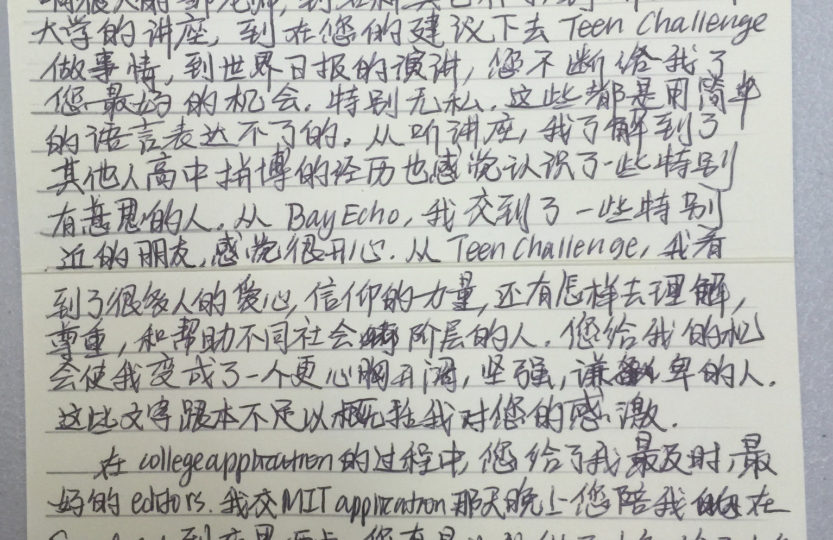 大学的讲座, 到在您的建议下去 Teen Challenge
做事情, 到世界日报的演讲, 您不断给我了
您最好的机会. 特别无私. 这些都是用简单
的语言表达不了的. 从听讲座, 我了解到了
其他人高中拼搏的经历也感觉认识了一些特别
有意思的人. 从 BayEcho, 我交到了一些特别
近的朋友, 感觉很开心. 从 Teen Challenge, 我看
到了很多人的爱心, 信仰的力量, 还有怎样去理解,
尊重, 和帮助不同社会阶层的人. 您给我的机
会使我变成了一个更心胸开阔, 坚强, 谦卑的人.
这些文字跟本不足以概括我对您的感激.
在 college application 的过程中, 您给了我最及时, 最
好的 editors. 我交 MIT application 那天晚上您陪我在